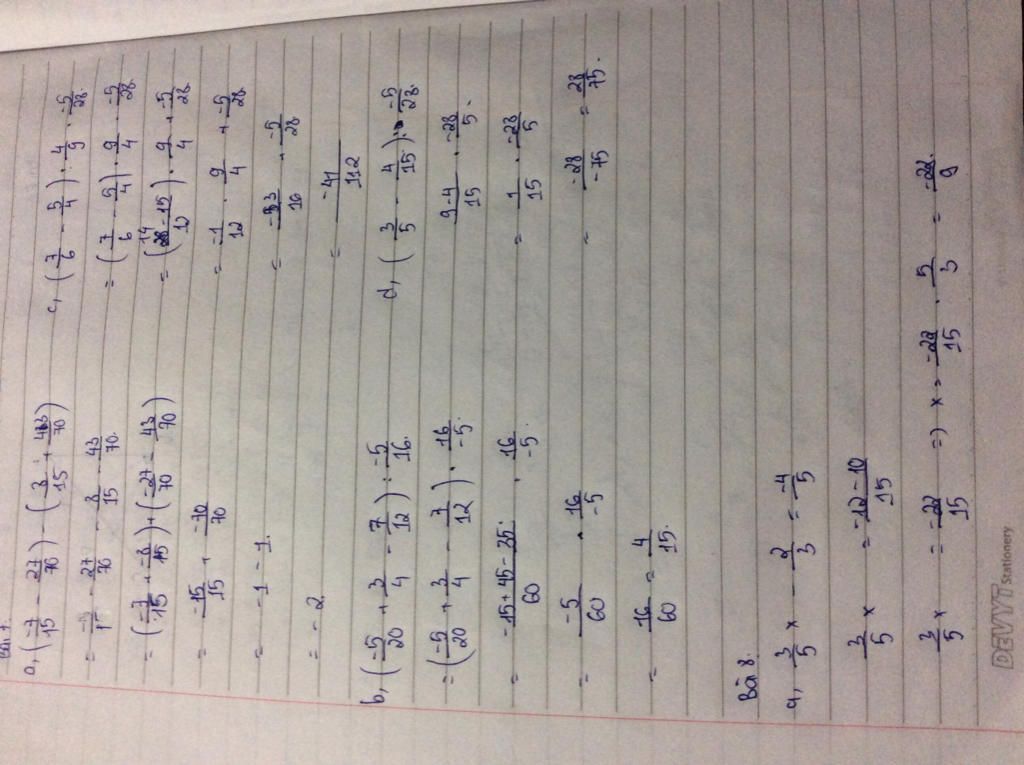 Bài 7.
a, (-7/15 - 27/70) - (8/15 + 43/70)
= -7/15 - 27/70 - 8/15 - 43/70.
= (-7/15 + -8/15) + (-27/70 - 43/70)
= -15/15 + -70/70
= -1 - 1.
= -2
b, (-5/20 + 3/4 - 7/12) : -5/16.
= (-5/20 + 3/4 - 7/12) . 16/-5.
= -15+45-35/60 . 16/-5.
= -5/60 . 16/-5
= 16/60 = 4/15.
c, (7/6 - 5/4) : 4/9 + -5/28.
= (7/6 - 5/4) . 9/4 + -5/28
= (14-15/12) . 9/4 + -5/28
= -1/12 . 9/4 + -5/28
= -3/16 + -5/28
= -41/112
d, (3/5 - 4/15) : -5/28
9-4/15 . -28/5.
= 1/15 . -28/5
= -28/-75 = 28/75.
Bài 8.
a, 3/5 x - 2/3 = -4/5
3/5 x = -12-10/15
3/5 x = -22/15 => x = -22/15 . 5/3 = -22/9.
DEVYT Stationery